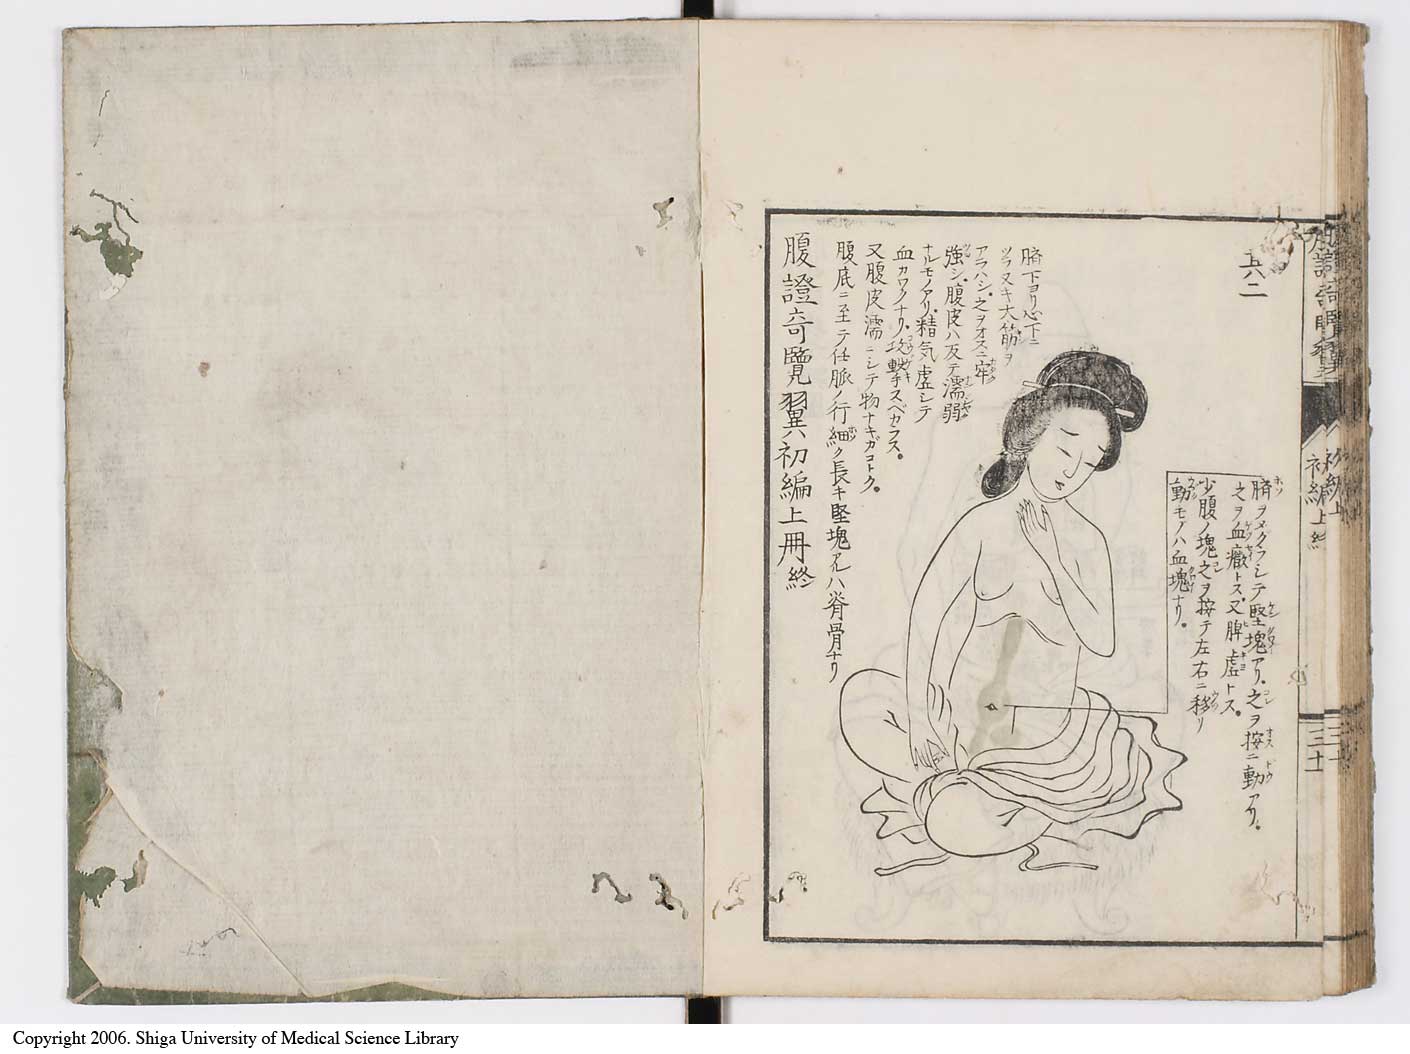 五八二
臍ヲメグラシテ堅塊アリ之ヲ按ニ動アリ。
之ヲ血癥トス又脾虚トス。
少腹ノ塊之ヲ按テ左右ニ移リ
動モノハ血塊ナリ。
臍下ヨリ心下ニ
ツラヌキ大筋ヲ
アラハシ之ヲオスニ牢
強シ腹皮ハ反テ濡弱
ナルモノアリ精気虚シテ
血カワクナリ攻撃スベカラス。
又腹皮濡ニシテ物ナキガコトク。
腹底ニ至テ任脈ノ行細ク長キ堅塊アルハ脊骨ナリ
腹證奇覽翼初編上冊終
初編上終
三十
Copyright 2006. Shiga University of Medical Science Library